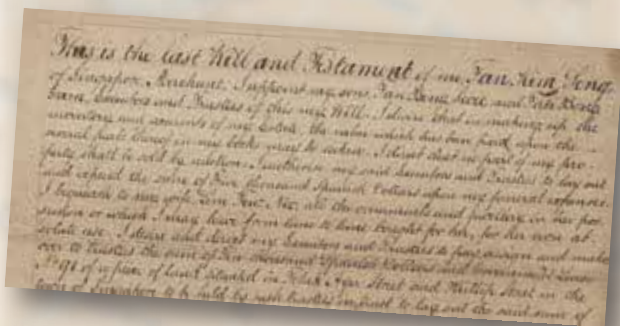 This is the last Will and Testament of me, Tan Kim Seng
of Singapore Merchant. I appoint my sons Tan Beng Swee and Tan Beng
Executors and Trustees of this my Will. I desire that in making up the
inventory and accounts of my Estate, the value which has been fixed upon the
several parts thereof in my books may be taken. I direct that no part of my pro-
perty shall be sold by auction. I authorize my said Executors and Trustees to lay out
and expend the sum of Thousand Spanish Dollars upon my funeral expenses.
I bequeath to my wife all the ornaments and jewellery in her pos-
session or which I may have from time to time bought for her, for her own ab-
solute use. I desire and direct my Executors and Trustees to pay assign and make
over to trustees the sum of Thousand Spanish Dollars and Lease
No. 91 of a piece of land situated in Telok Ayer Street and Phillip Street in the
town of Singapore to be held by such trustees in trust to lay out the said sum of